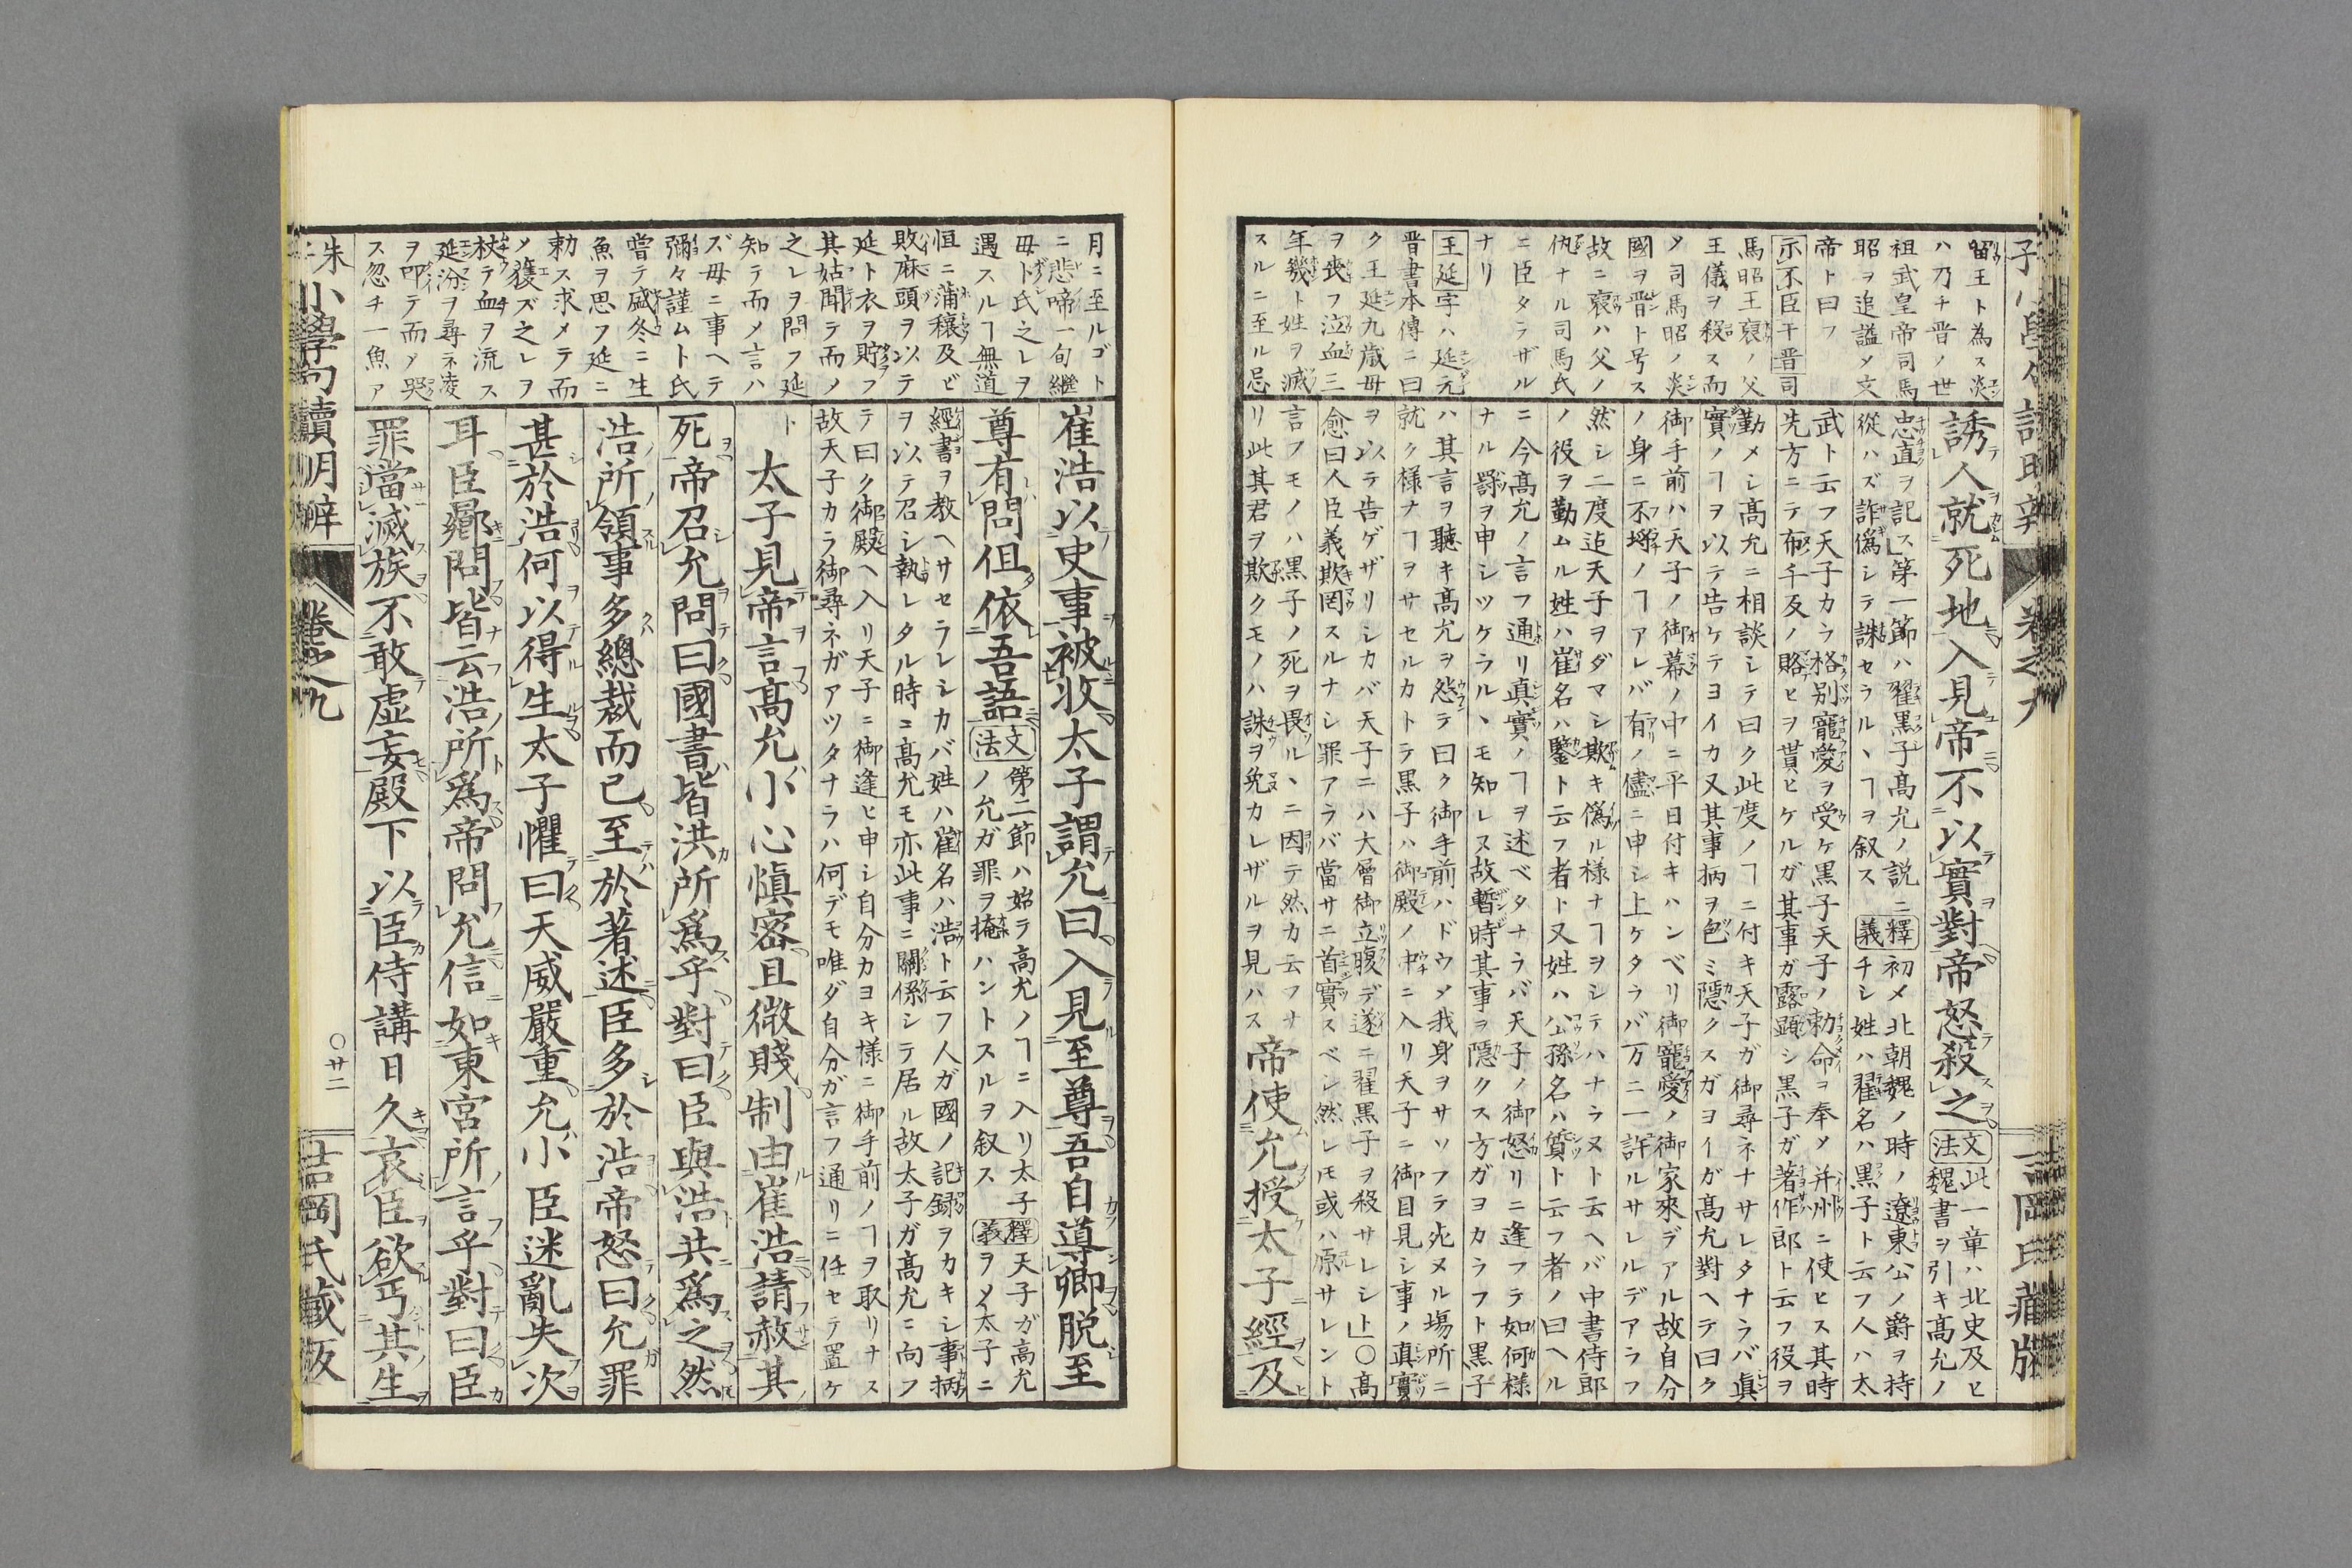 留王ト為ス炎
ハ乃チ晋ノ世
祖武皇帝司馬
昭ヲ追謚メ文
帝ト曰フ
示不臣于晋司
馬昭王裒ノ父
王儀ヲ殺ス而
メ司馬昭ノ炎
國ヲ晋ト号ス
故ニ裒ハ父ノ
仇ナル司馬氏
ニ臣タラザル
ナリ
王延字ハ延元
晋書本傳ニ曰
ク王延九歳母
ヲ喪フ泣血三
年幾ト姓ヲ滅
スルニ至ル忌
誘人就死地入見帝不以實對帝怒殺之文法
此一章ハ北史及ヒ
魏書ヲ引キ高允ノ
忠直ヲ記ス第一節ハ翟黒子高允ノ説ニ釋義初メ北朝魏ノ時ノ遼東公ノ爵ヲ持
從ハズ詐偽シテ誅セラルヽヿヲ叙ス チシ姓ハ翟名ハ黒子ト云フ人ハ太
武ト云フ天子カラ格別寵愛ヲ受ケ黒子天子ノ勅命ヲ奉メ并州ニ使ヒス其時
先方ニテ布千反ノ賂ヒヲ貰ヒケルガ其事ガ露顕シ黒子ガ著作郎ト云フ役ヲ
勤メシ高允ニ相談シテ曰ク此度ノヿニ付キ天子ガ御尋ネナサレタナラバ眞
實ノヿヲ以テ告ケテヨイカ又其事柄ヲ包ミ隠クスガヨイガ高允對ヘテ曰ク
御手前ハ天子ノ御幕ノ中ニ平日付キハンベリ御寵愛ノ御家來デアル故自分
ノ身ニ不埒ノヿアレバ有ノ儘ニ申シ上ケタラバ万ニ一許ルサレルデアラフ
然シ二度迠天子ヲダマシ欺キ偽ル様ナヿヲシテハナラヌト云ヘバ中書侍郎
ノ役ヲ勤ムル姓ハ崔名ハ鑒ト云フ者ト又姓ハ公孫名ハ質ト云フ者ノ曰ヘル
ニ今高允ノ言フ通リ真實ノヿヲ述ベタナラバ天子ノ御怒リニ逢フテ如何様
ナル罰ヲ申シツケラルヽモ知レヌ故暫時其事ヲ隠クス方ガヨカラフト黒子
ハ其言ヲ聴キ高允ヲ怨テ曰ク御手前ハドウメ我身ヲサソフテ死メル場所ニ
就ク様ナヿヲサセルカトテ黒子ハ御殿ノ中ニ入リ天子ニ御目見シ事ノ真實
ヲ以テ告ゲザリシカバ天子ニハ大層御立腹デ遂ニ翟黒子ヲ殺サレシト」〇高
愈曰人臣義欺罔スルナシ罪アラバ當サニ首實スベシ然レモ或ハ原サレント
言フモノハ黒子ノ死ヲ畏ルヽニ因テ然カ云フナ
リ此其君ヲ欺クモノハ誅ヲ免カレザルヲ見ハス
帝使允授太子經及
月ニ至ルゴト
ニ悲啼一旬繼
毋卜氏之レヲ
遇スルヿ無道
恒ニ蒲穰及ビ
敗麻頭ヲ以テ
延ト衣ヲ貯フ
其姑聞テ而ノ
之レヲ問フ延
知テ而メ言ハ
ズ毋ニ事ヘテ
彌々謹ムト氏
嘗テ盛冬ニ生
魚ヲ思フ延ニ
勅ス求メテ而
ノ獲ズ之レヲ
杖テ血ヲ流ス
延汾ヲ尋ネ凌
ヲ叩テ而メ哭
ス忽チ一魚ア
崔浩以史事被收太子謂允曰入見至尊吾自導卿脱至
尊有問但依吾語文法
第二節ハ始テ高允ノヿニ入リ太子釋義天子ガ高允
ノ允ガ罪ヲ掩ハントスルヲ叙ス ヲメ太子ニ
經書ヲ教ヘサセラレシカバ姓ハ崔名ハ浩ト云フ人ガ國ノ記録ヲカキシ事柄
ヲ以テ召シ執レタル時ニ高允モ亦此事ニ關係シテ居ル故太子ガ高允ニ向フ
テ曰ク御殿ヘ入リ天子ニ御逢ヒ申シ自分カヨキ様ニ御手前ノヿヲ取リナス
故天子カラ御尋ネガアツタナラハ何デモ唯ダ自分ガ言フ通リニ任セテ置ケ
ト
太子見帝言高允小心愼密且微賤制由崔浩請赦其
死帝召允問曰國書皆浩所爲乎對曰臣與浩共爲之然
浩所領事多總裁而已至於著述臣多於浩帝怒曰允罪
甚於浩何以得生太子懼曰天威嚴重允小臣迷亂失次
耳臣嚮問皆云浩所爲帝問允信如東宮所言乎對曰臣
罪當滅族不敢虚妄殿下以臣侍講日久哀臣欲丐其生
朱子小學句讀明辨 卷之九 〇廿二 吉岡氏藏版